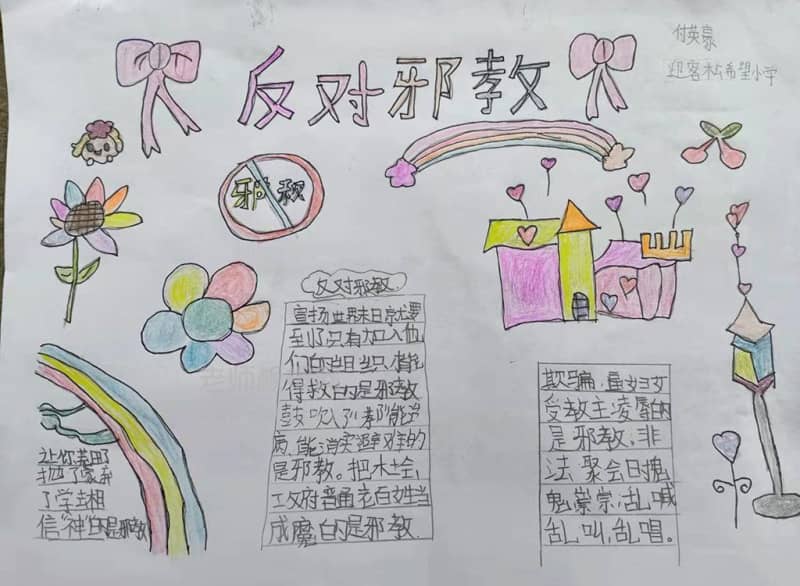 付英豪
迎客松希望小学
反对邪教
邪教
反对邪教
宣扬世界末日就要
到了只有加入他
们的组织才能
得救的是邪教
鼓吹入了"教"能治
病,能消灾避难的
是邪教。把木社会,
政府普通老百姓当
成魔的是邪教.
欺骗,妇女
受教主凌辱的
是邪教;非
法聚会时鬼
鬼祟祟,乱喊
乱叫,乱唱。
让你丢田了
抛了家弃
了学去相
信"神"的是邪教